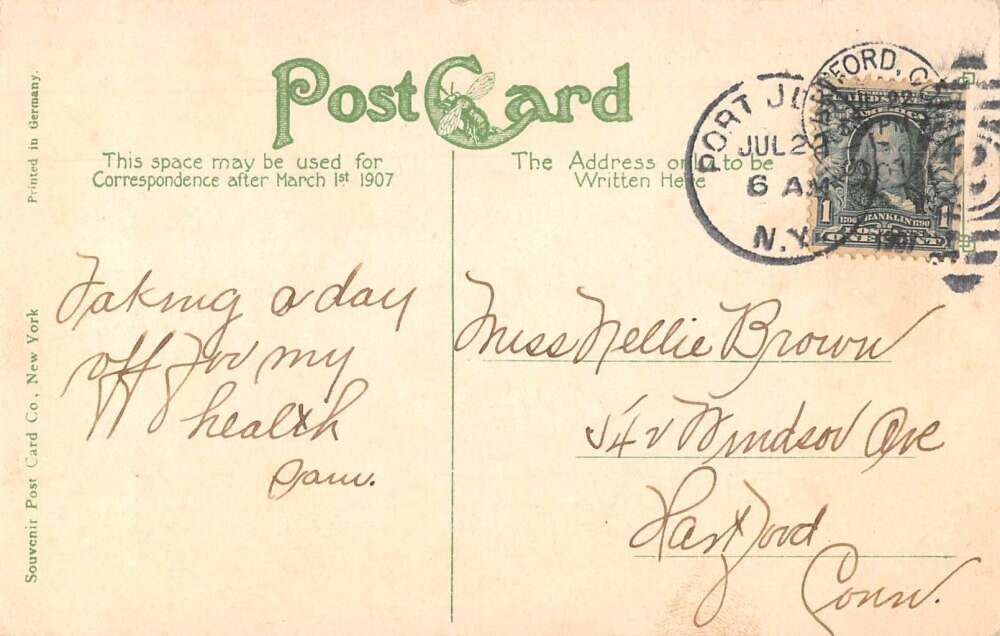 Post Card
This space may be used for
Correspondence after March 1st 1907
The Address only to be
Written Here
Printed in Germany.
Souvenir Post Card Co., New York
PORT
JUL 2
6 AM
N.Y.
HARTFORD, C
1
1706 FRANKLIN 1790
1907
Taking a day
off for my
health
Sam.
Miss Nellie Brown
542 Windsor Ave
Hartford
Conn.